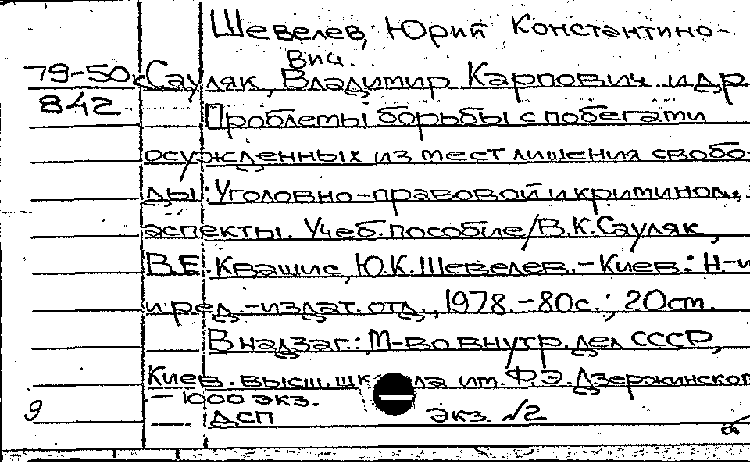 Шевелев, Юрий Константино-
вич.
79-50. Сауляк, Владимир Карпович и др
842 Проблемы борьбы с побегами
осужденных из мест лишения свобо-
ды: Уголовно-правовой и криминол.
аспекты. Учеб. пособие/В.К.Сауляк,
В.Е.Квашис, Ю.К.Шевелев.-Киев: Н-и
и ред.-издат. отд., 1978.-80с.; 20см.
В надзаг.: М-во внутр. дел СССР,
Киев. высш. школа им. Ф.Э.Дзержинског
- 1000 экз.
9 ДСП экз. №2